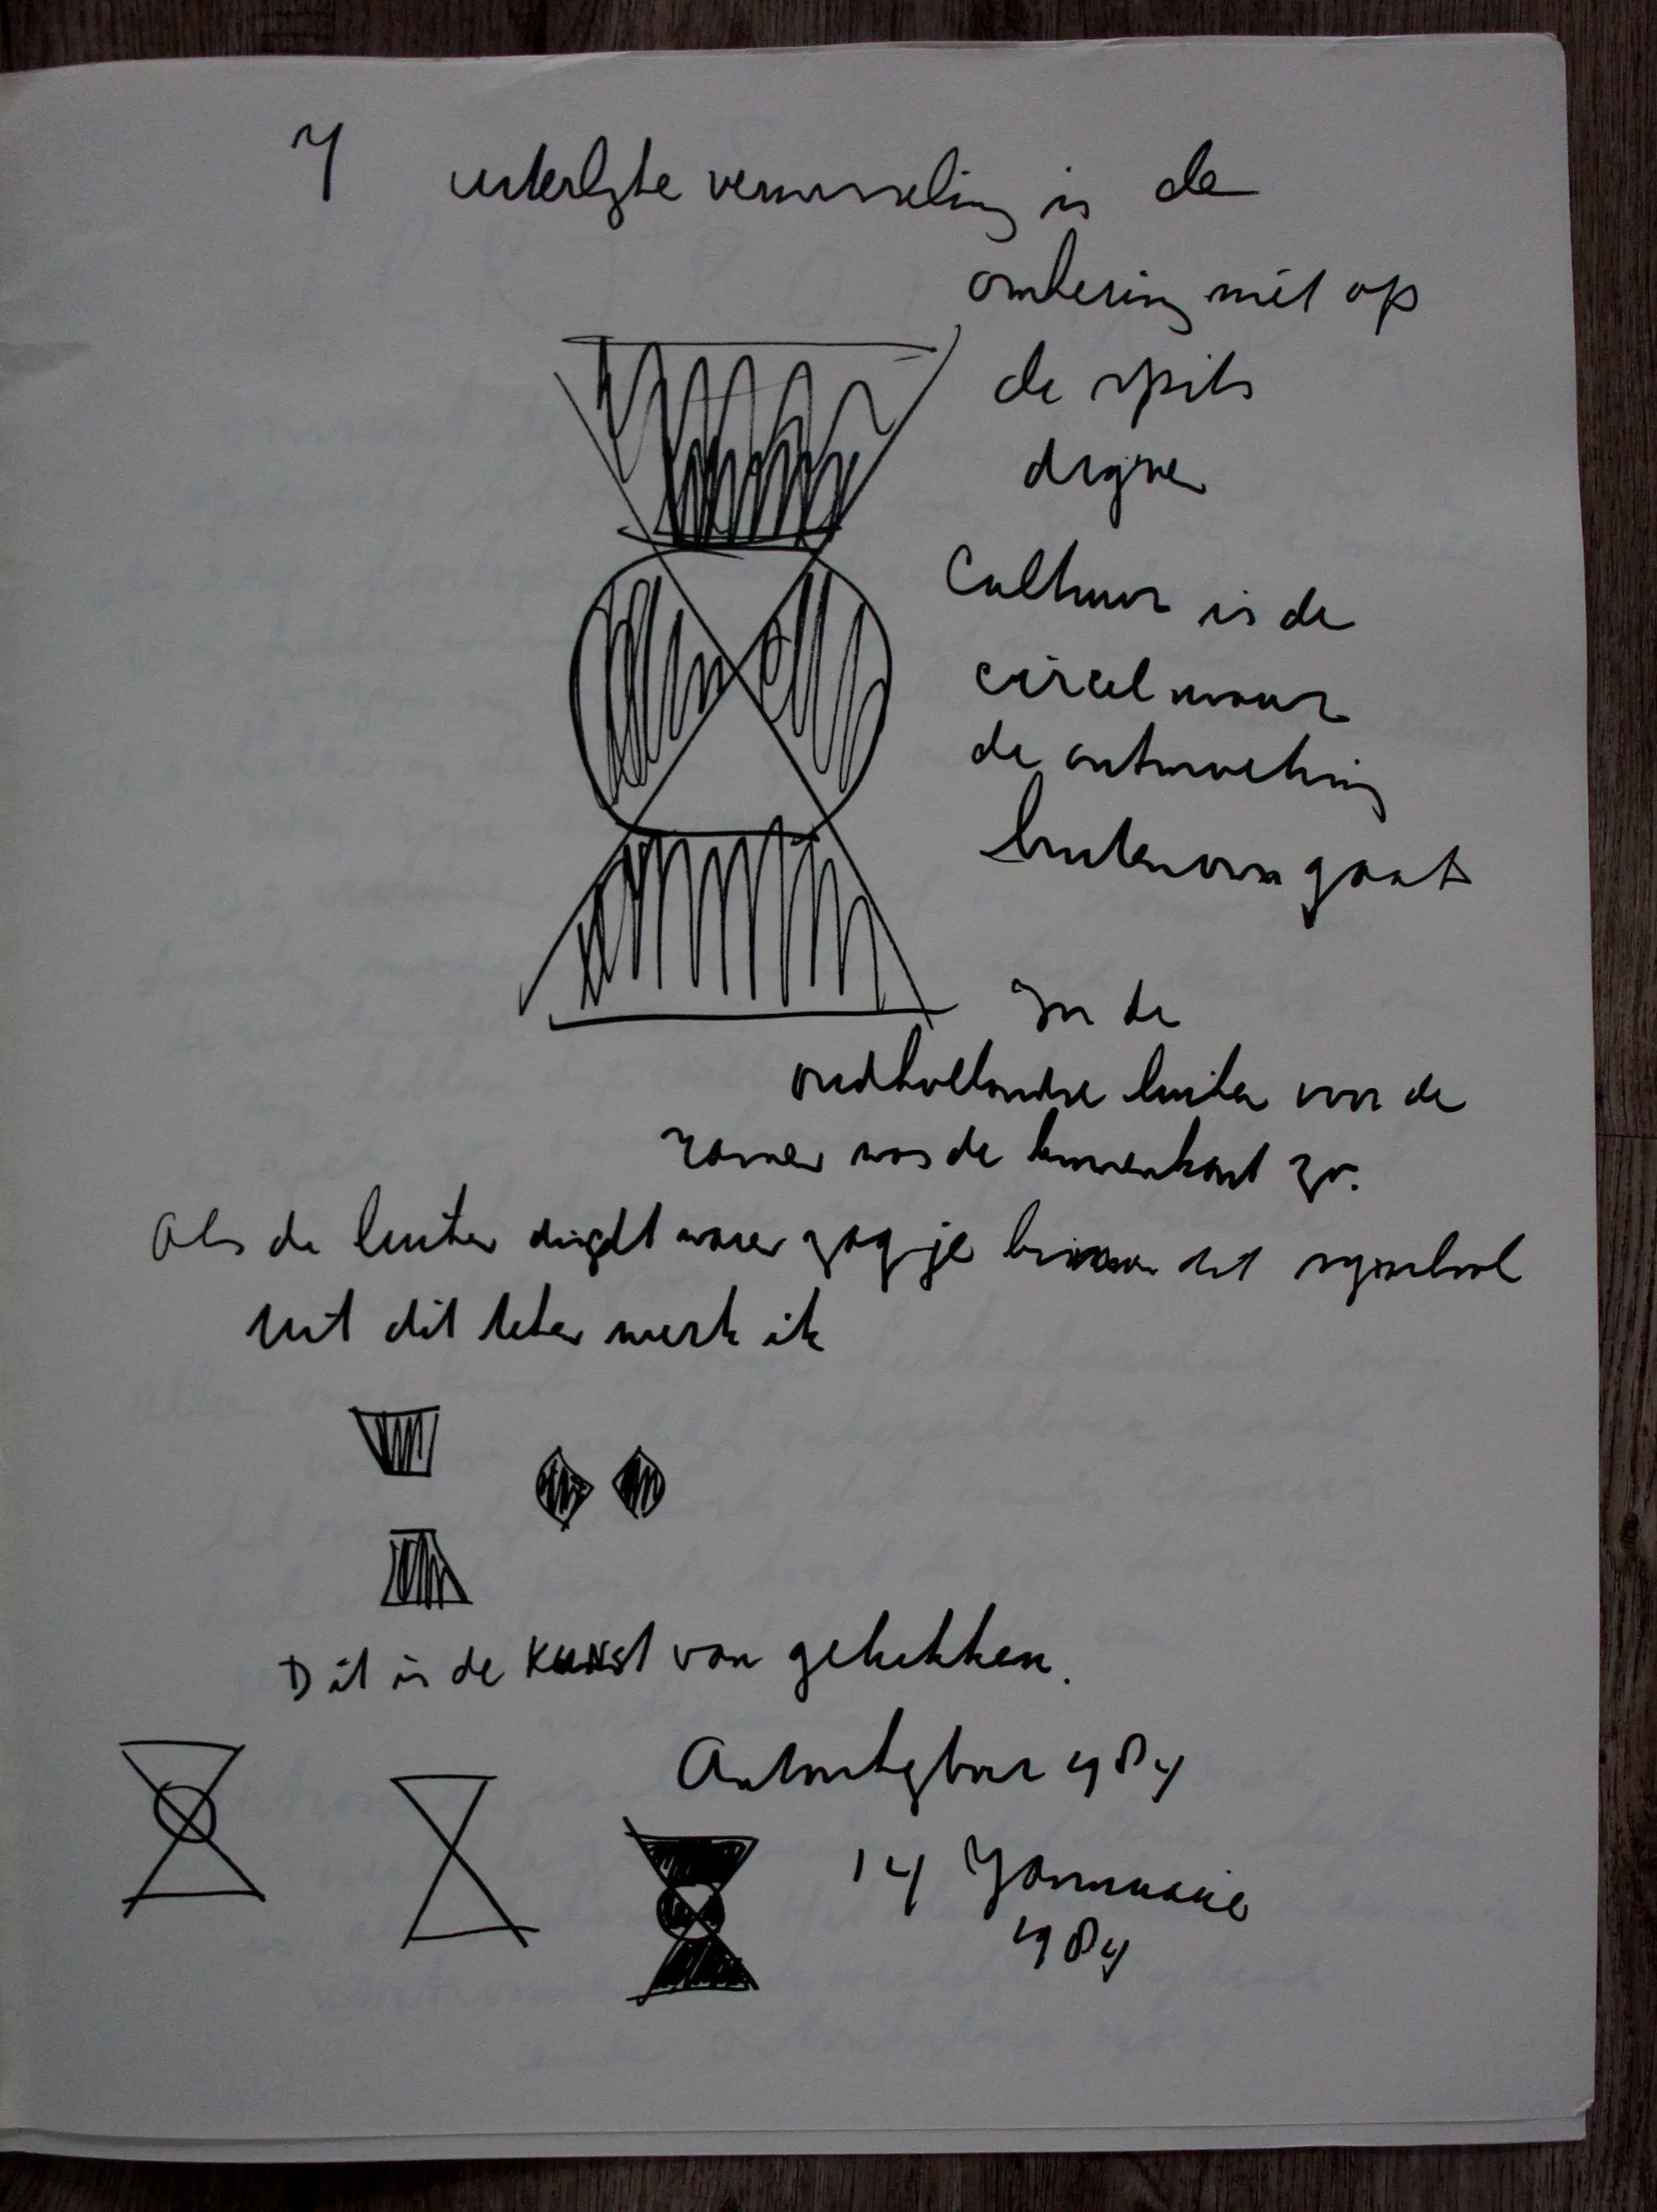 7 uiterlijke verwisseling is de
omkering niet op
de spits
drijven
Cultuur is de
cirkel waar
de ontwrichting
buitenom gaat
In de
oudhollandse luiken van de
ramen was de binnenkant zo.
Als de luiken dicht waren zag je binnen dit symbool
Uit dit teken werk ik
Dit is de kunst van gelukken.
1984
14 Januarie
1984